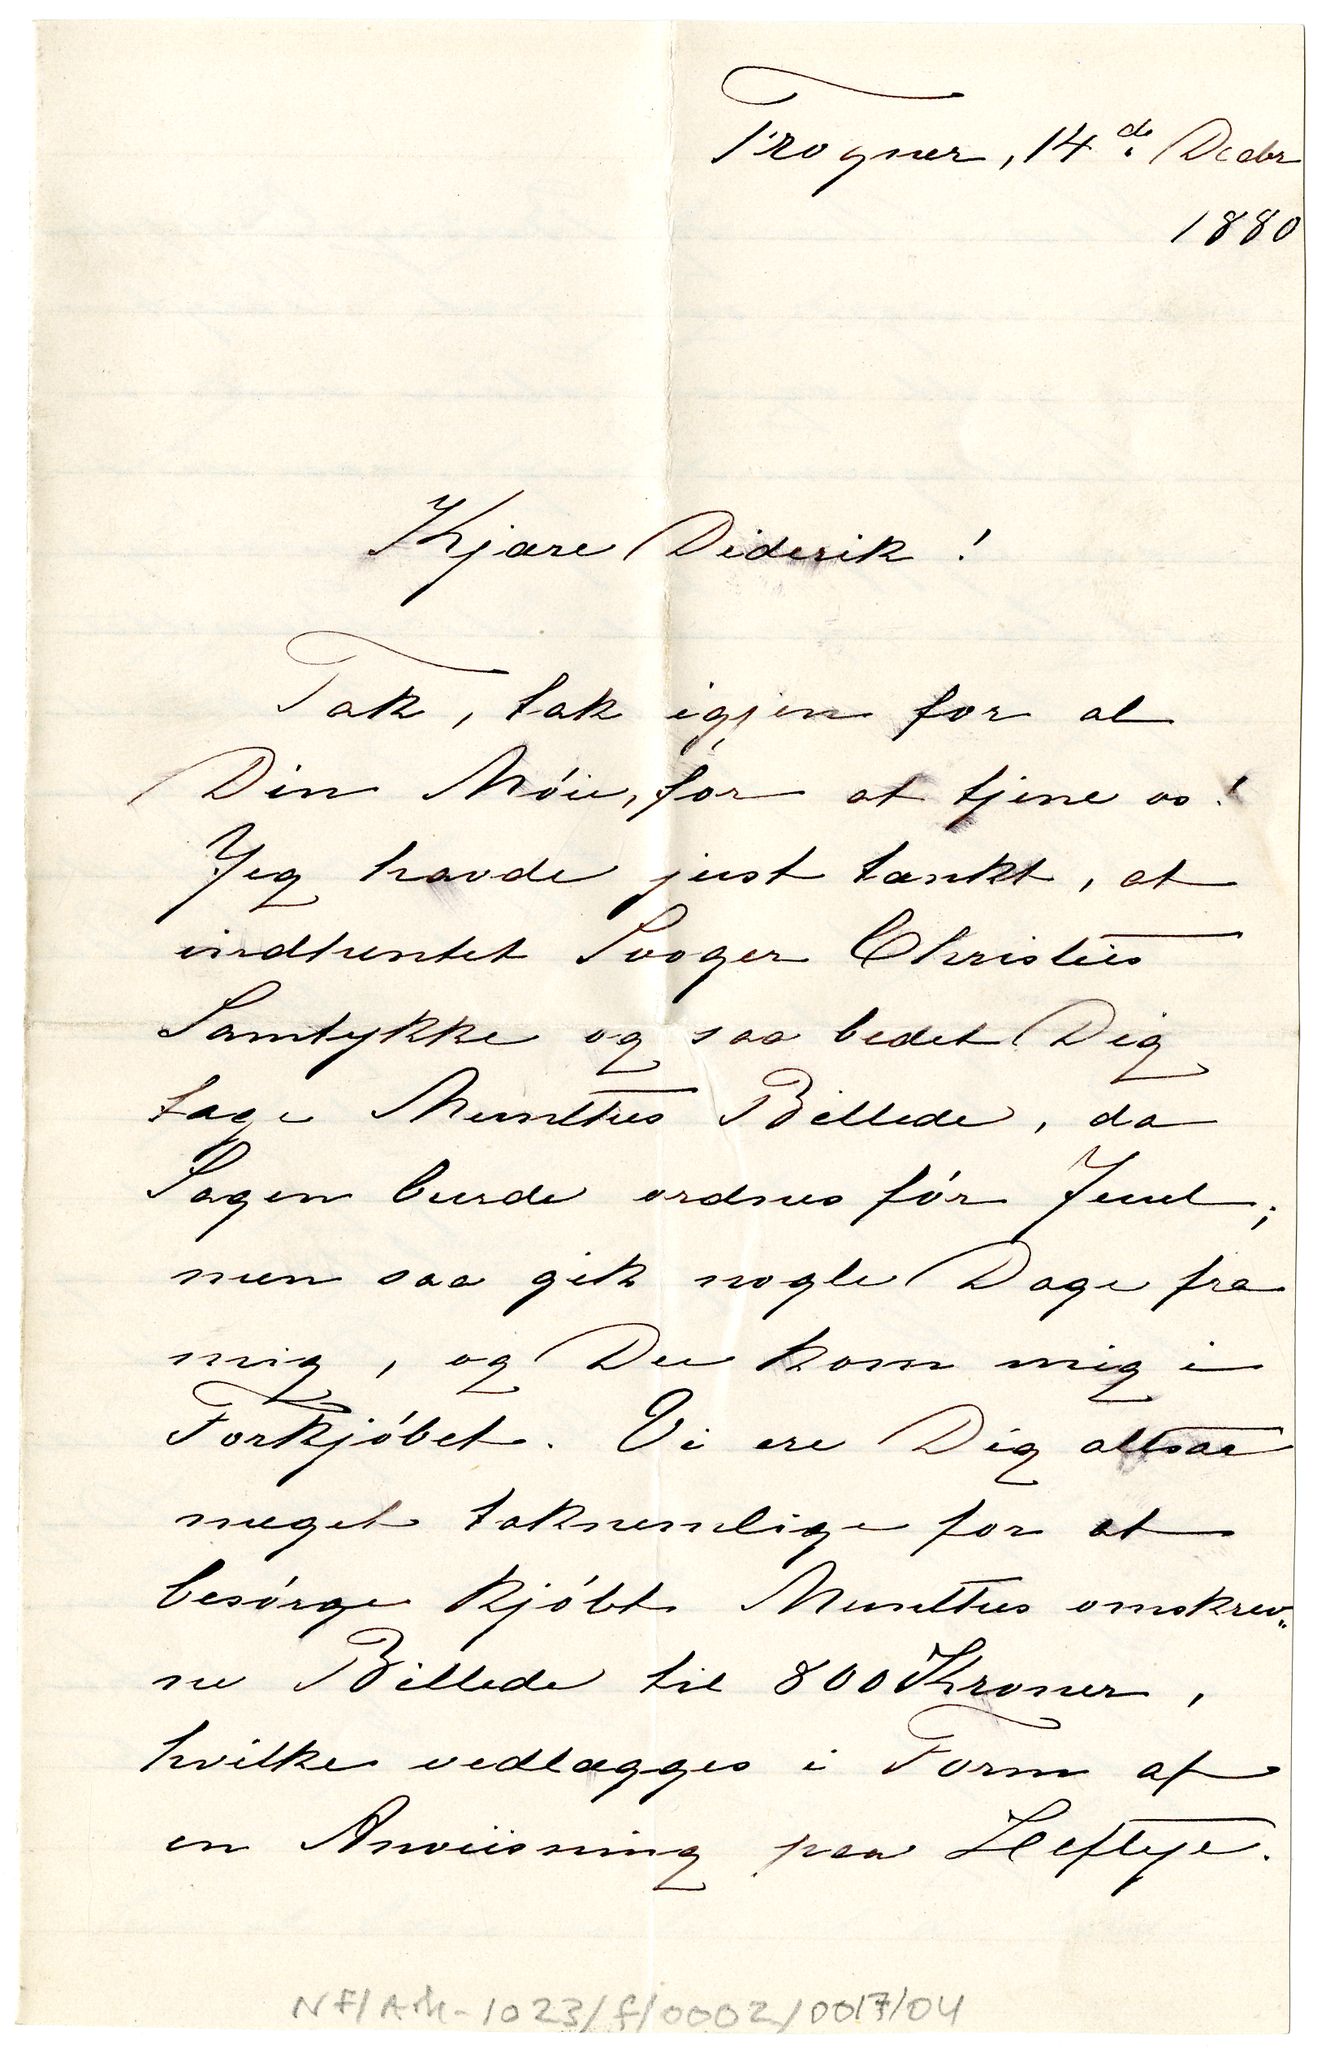 Frogner, 14de Decbr
1880
Kjære Diderik!
Tak, tak igjen for al
Din Möie, for at tjene os!
Jeg havde just tænkt, at
indhentet Svoger Christies
Samtykke og saa bedet Dig
tage Munthes Billede, da
Sagen burde ordnes för Juul;
men saa gik nogle Dage fra
mig, og Du kom mig i
Forkjöbet. Vi ere Dig altsaa
meget taknemlige for at
besörge kjöbt Munthes omskrev„
ne Billede til 800 Kroner,
hvilke vedlægges i Form af
en Anviisning paa Heftye.
NF/Ark-1023/f/0002/0017/04